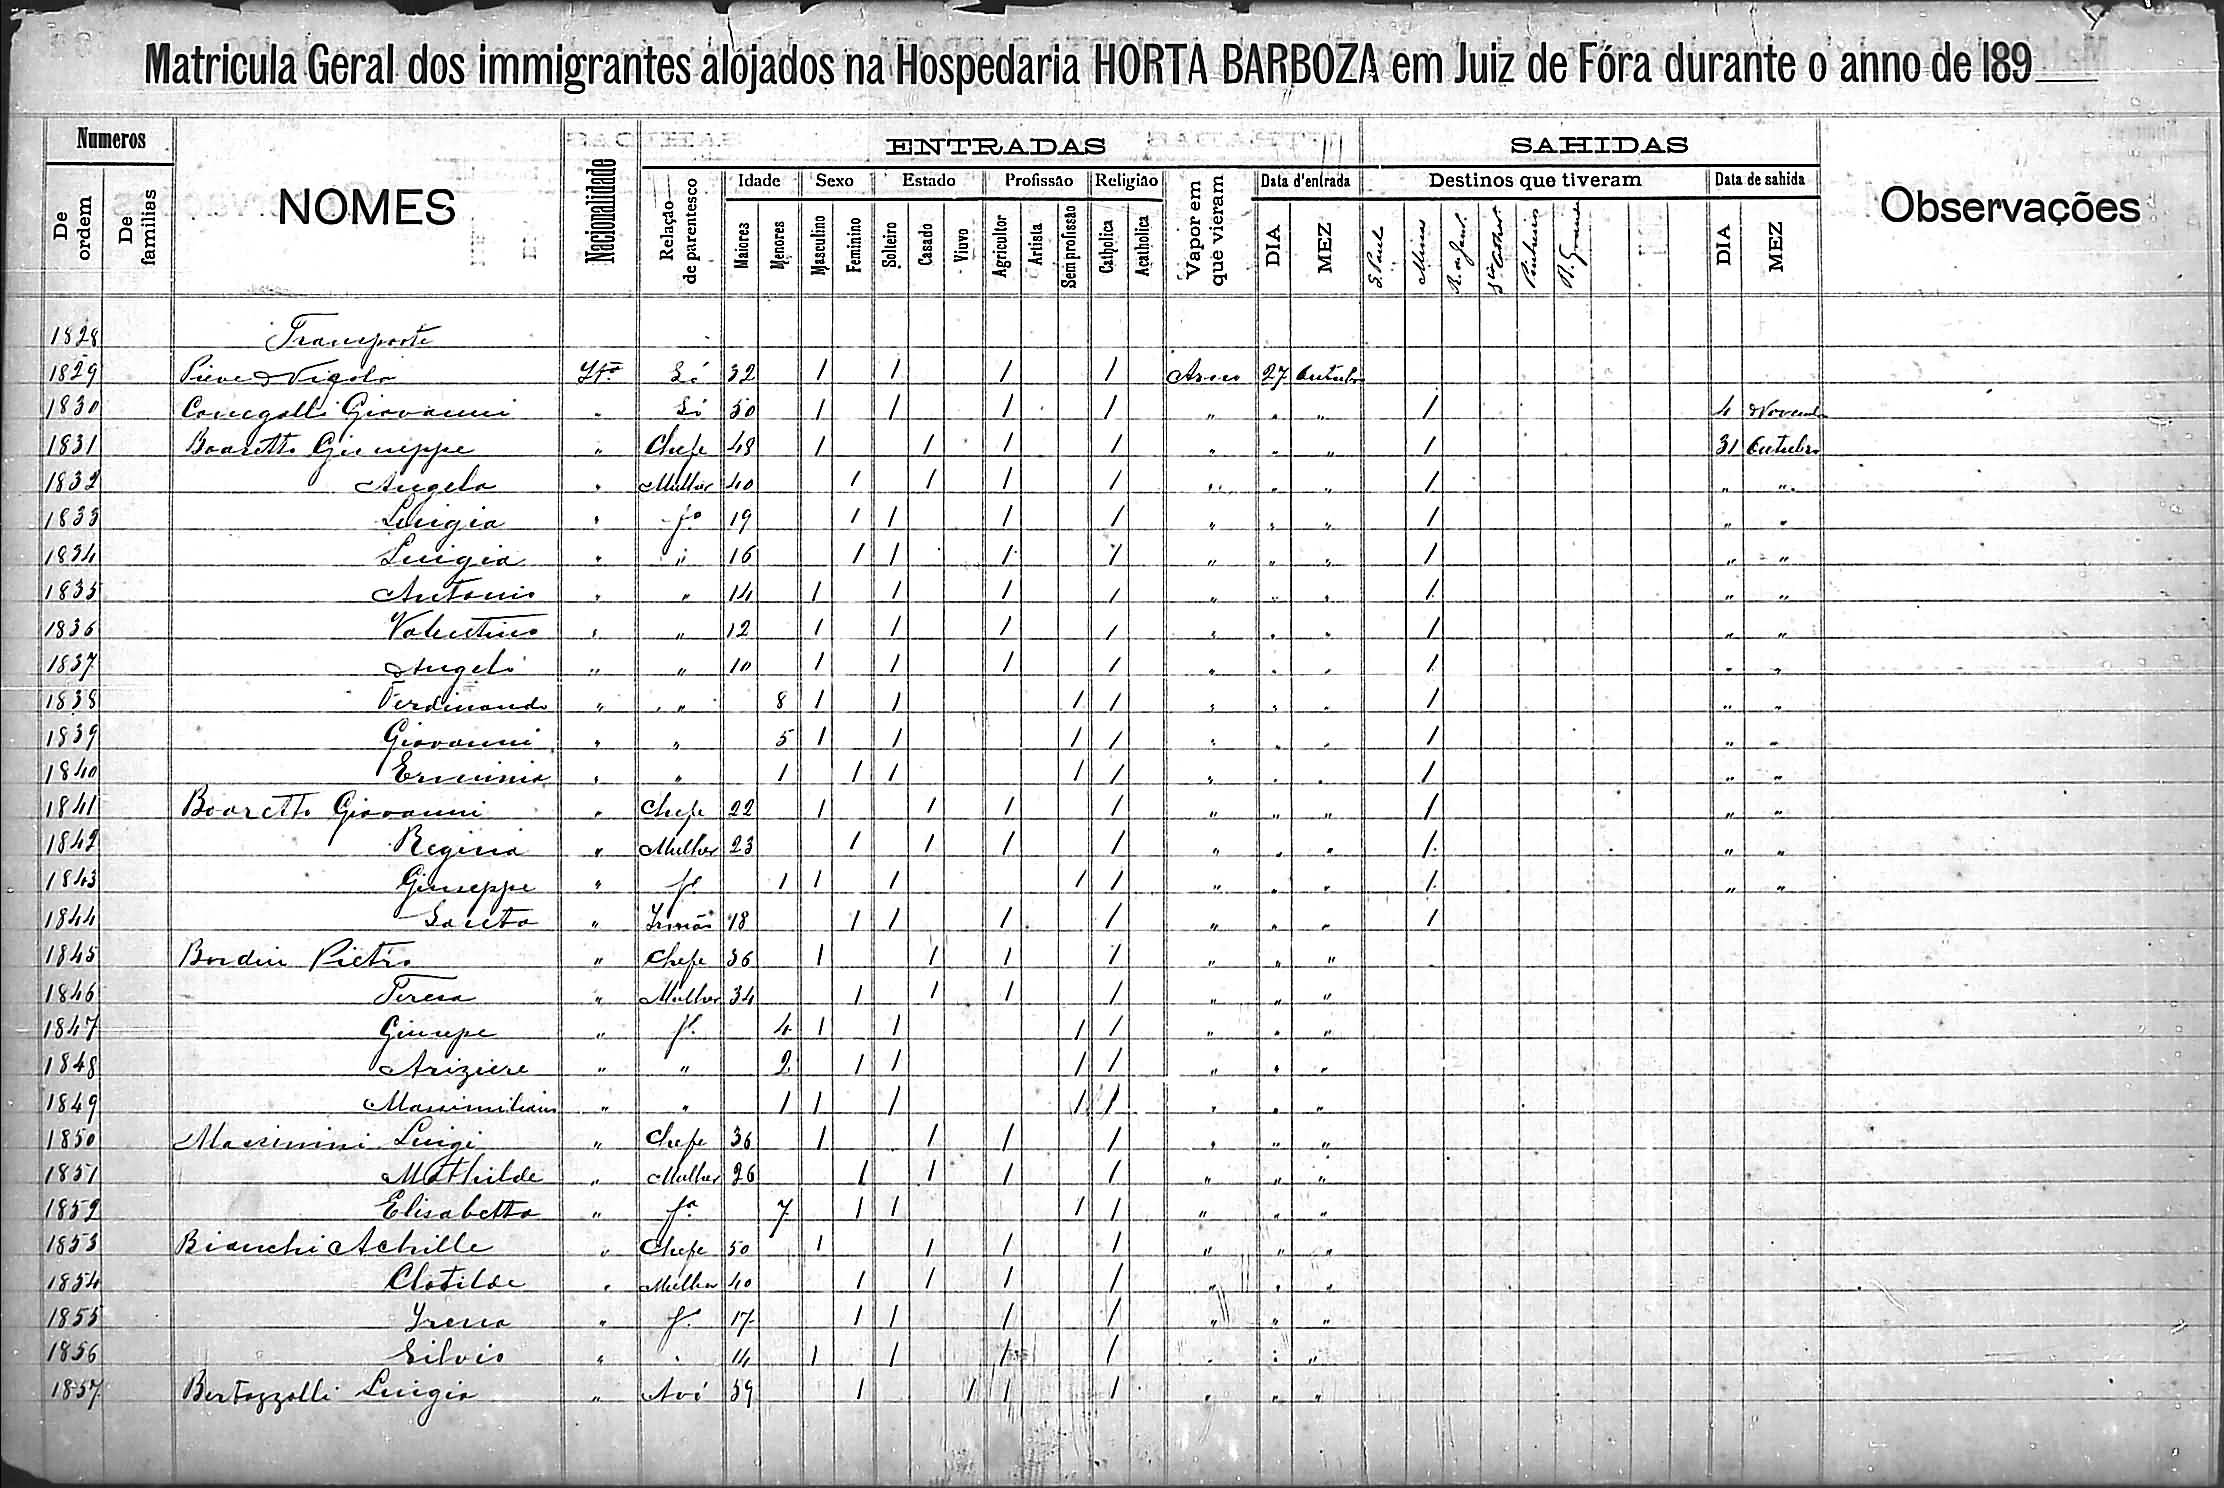 Matricula Geral dos immigrantes alojados na Hospedaria HORTA BARBOZA em Juiz de Fóra durante o anno de 189
Numeros NOMES Nacionalidade ENTRADAS SAHIDAS Observações
De ordem De familias Relação de parentesco Idade Sexo Estado Profissão Religião Vapor em que vieram Data d'entrada Destinos que tiveram Data de sahida
Maiores Menores Masculino Feminino Solteiro Casado Viuvo Agricultor Artista Sem profissão Catholica Acatholica DIA MEZ S. Paul Minas DIA MEZ
1828 Transporte
1829 Só 32 1 1 1 1 27 Outubro
1830 Giovanni " Só 50 1 1 1 1 " " " 1 4 Novemb
1831 Boaretto Giuseppe " Chefe 48 1 1 1 1 " " " 1 31 Outubro
1832 Angela " Mulher 40 1 1 1 1 " " " 1 " "
1833 Luigia " fª 19 1 1 1 1 " " " 1 " "
1834 Luigia " " 16 1 1 1 1 " " " 1 " "
1835 Antonio " " 14 1 1 1 1 " " " 1 " "
1836 Valentino " " 12 1 1 1 1 " " " 1 " "
1837 Angelo " " 10 1 1 1 1 " " " 1 " "
1838 Ferdinando " " 8 1 1 1 1 " " " 1 " "
1839 Giovanni " " 5 1 1 1 1 " " " 1 " "
1840 Erminia " " 1 1 1 1 1 " " " 1 " "
1841 Boaretto Giovanni " Chefe 22 1 1 1 1 " " " 1 " "
1842 Regina " Mulher 23 1 1 1 1 " " " 1 " "
1843 Giuseppe " fº 1 1 1 1 1 " " " 1 " "
1844 Santa " Irmãa 18 1 1 1 1 " " " 1
1845 Bordin Pietro " Chefe 36 1 1 1 1 " " "
1846 Teresa " Mulher 34 1 1 1 1 " " "
1847 Giusepe " fº 4 1 1 1 1 " " "
1848 " " 2 1 1 1 1 " " "
1849 Massimiliano " " 1 1 1 1 1 " " "
1850 Massimini Luigi " Chefe 36 1 1 1 1 " " "
1851 Mathilde " Mulher 26 1 1 1 1 " " "
1852 Elisabetta " fª 7 1 1 1 1 " " "
1853 Bianchi Achille " Chefe 50 1 1 1 1 " " "
1854 Clotilde " Mulher 40 1 1 1 1 " " "
1855 Irena " fª 17 1 1 1 1 " " "
1856 Silvio " " 14 1 1 1 1 " " "
1857 Bertozzolli Luigia " Avó 59 1 1 1 1 " " "